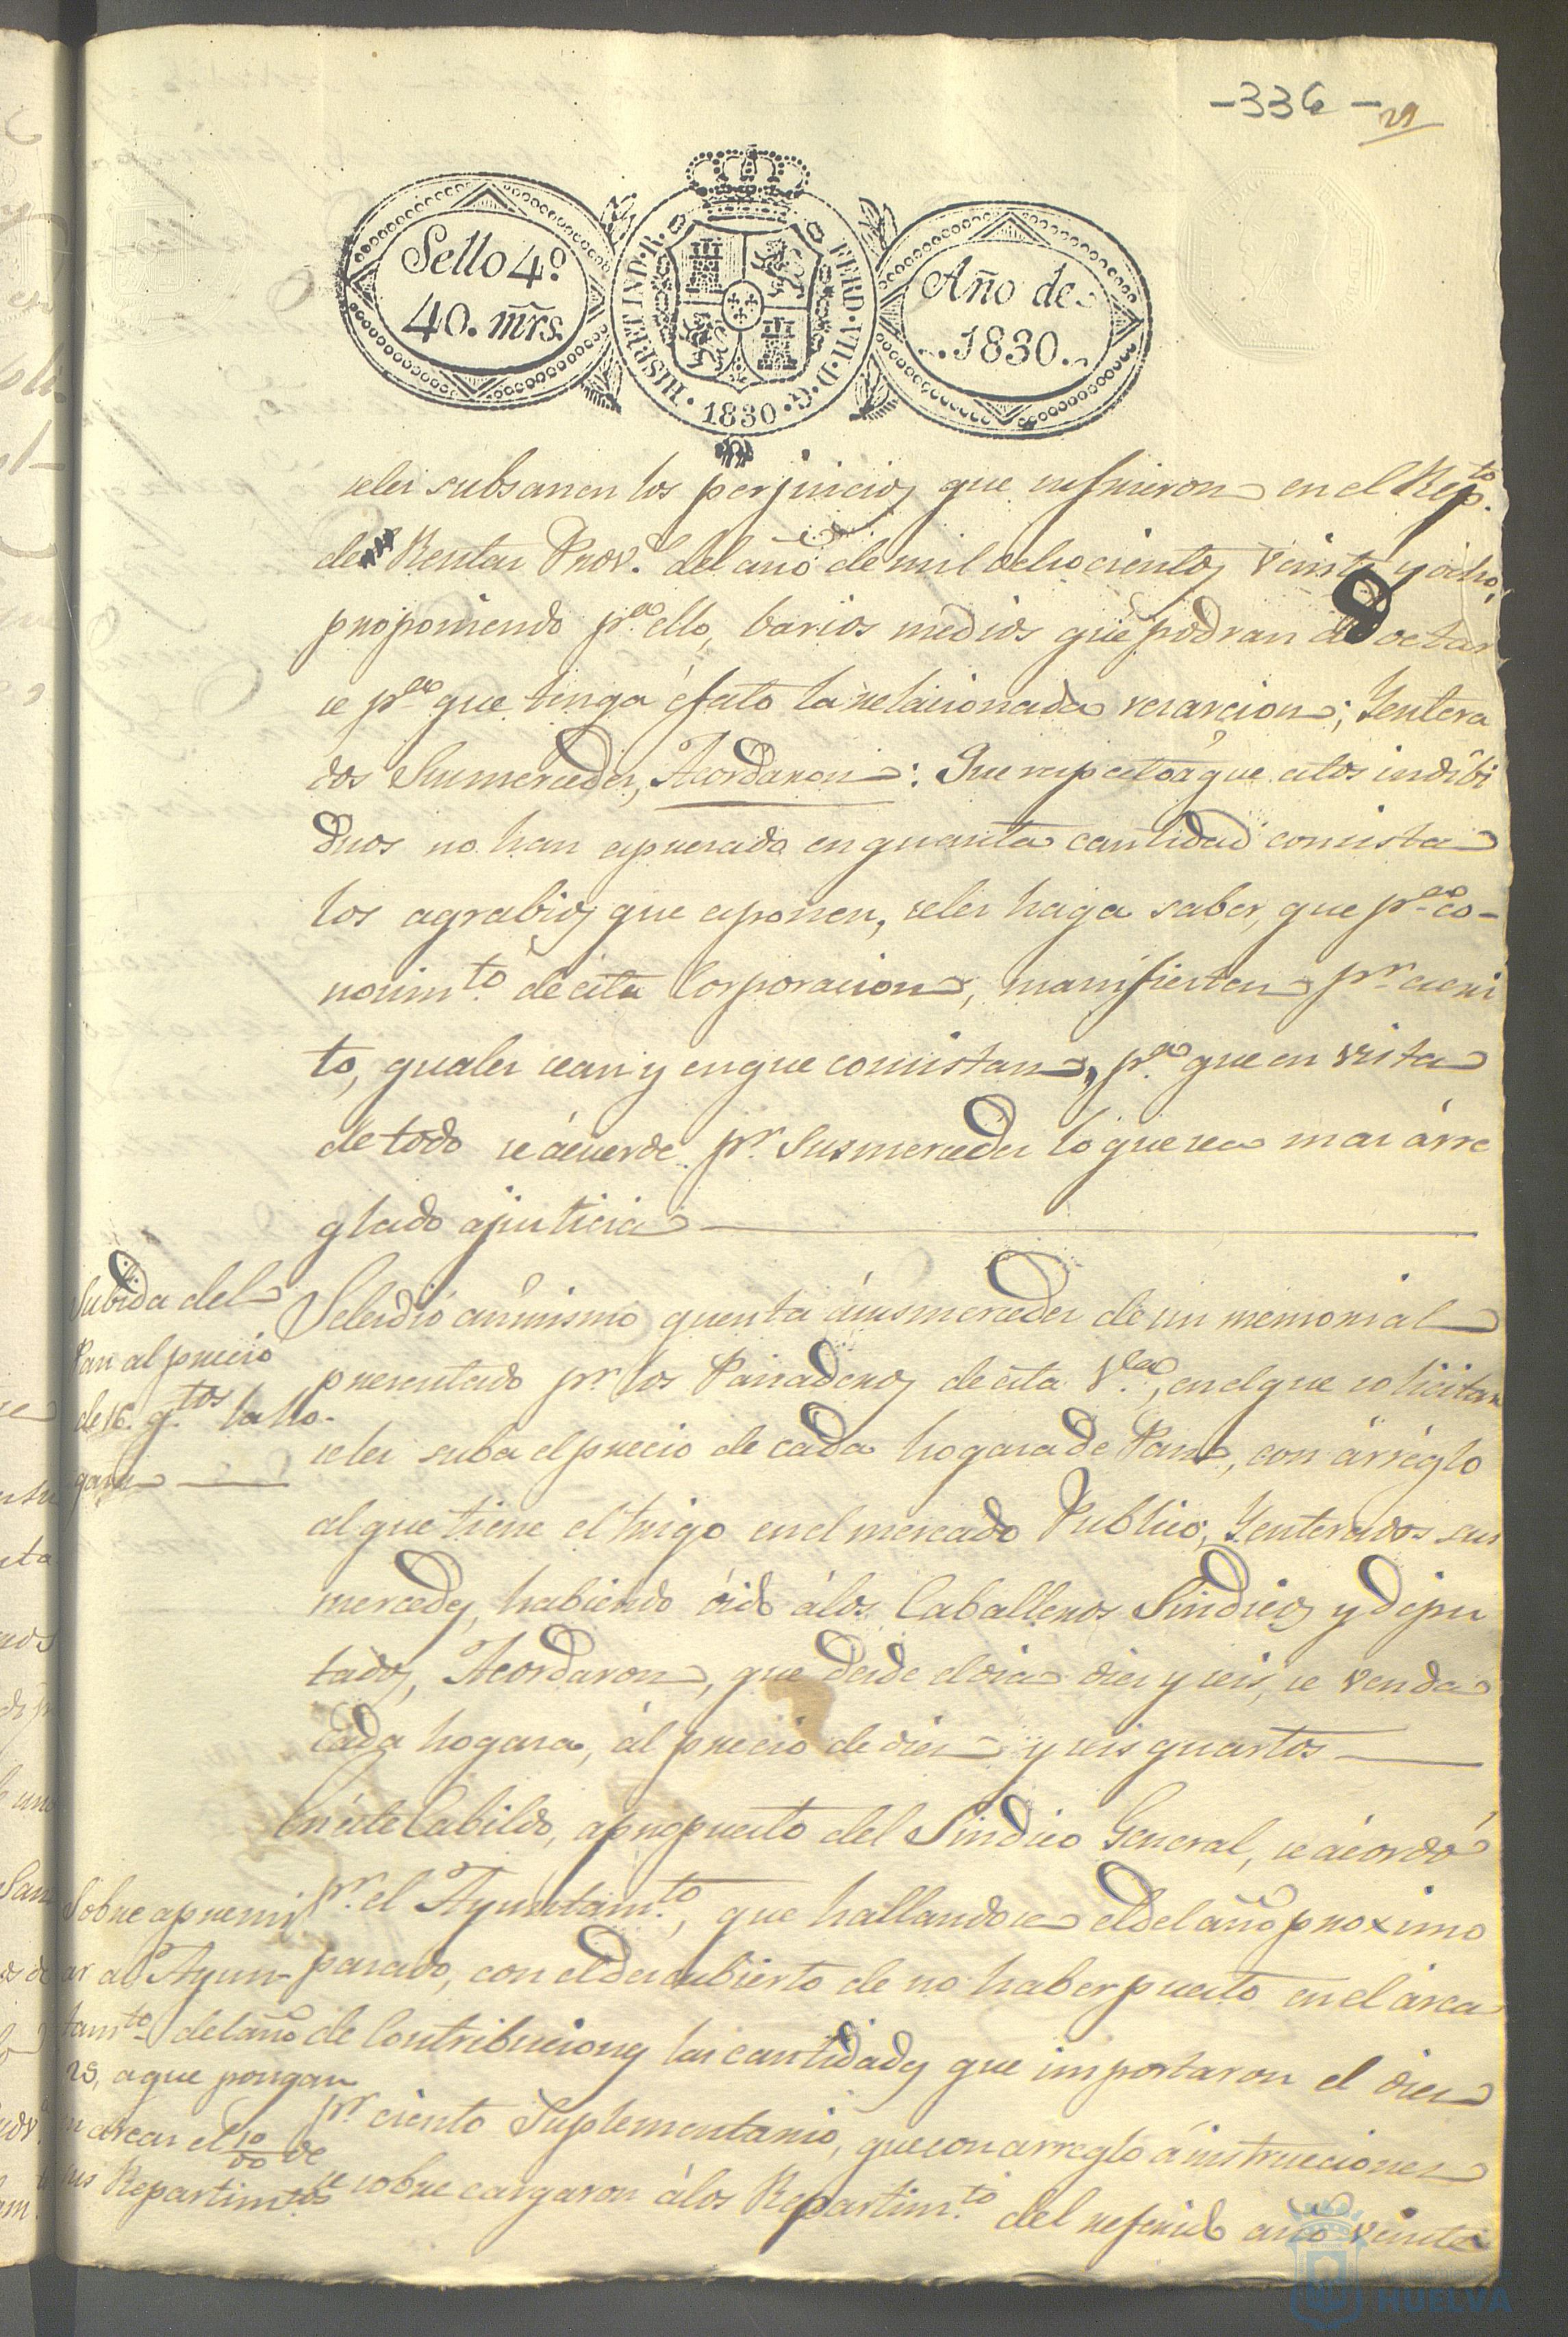 -336-
29
Sello 4º
40. mr̃s.
HISP.ET IND.R.
FERD.VII.D.G.
1830
Año de
1830.
seles subsanen los perjuicios que sufrieron en el Rep.to
de Rentas Prov.s del año de mil ochocientos veinte y ocho,
proponiendo p.a ello, barios medios que podran adoctar
se p.a que tenga éfecto la relacionada resarcion; Yentera
dos Susmercedes, Acordaron: Que respectoá que estos indibi
duos no han espresado en quanta cantidad consista
los agrabios que esponen, seles haga saber, que p.a co-
nosim.to de esta Corporacion, manifiesten p.r escri
to, quales sean y enque consistan, p.a que en vista
de todo se ácuerde p.r Susmercedes lo que sea mas árre
glado ajusticia
Subida del
Pan al precio
de 16. q.tos la ho-
gasa
Seledió asimismo quenta ásusmercedes de un memorial
presentado p.r los Panaderos de esta V.a, enelque solicitan
seles suba el precio de cada hogasa de Pan, con árréglo
al que tiene el trigo en el mercado Publico, Yenterados sus
mercedes, habiendo óido álos Caballeros Sindicos y dipu
tados, Acordaron, que desde eldia dies y seis, se venda
Cada hogasa, ál precio de dies y seis quartos
Enéste Cabildo, apropuesto del Sindico General, se ácordó
p.r el Ayuntam.to, que hallandose eldel año proximo
pasado, con eldescubierto de no haber puesto en el arca
de Contribuciones las cantidades que importaron el dies
p.r ciento Suplementario, quecon arreglo áinstrucciones
se sobre cargaron álos Repartim.to del referido año veinte
Sobre apremi
ar al Ayun-
tam.to del año
29, a que pongan
en arcas el 10 00 de
sus Repartim.tos
HUELVA